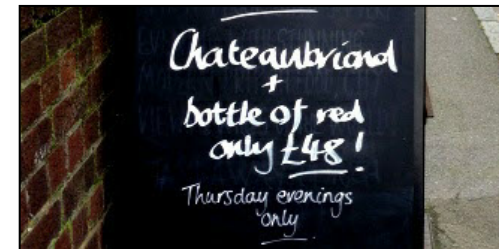 Chateaubriand
+
bottle of red
only £48!
Thursday evenings
only